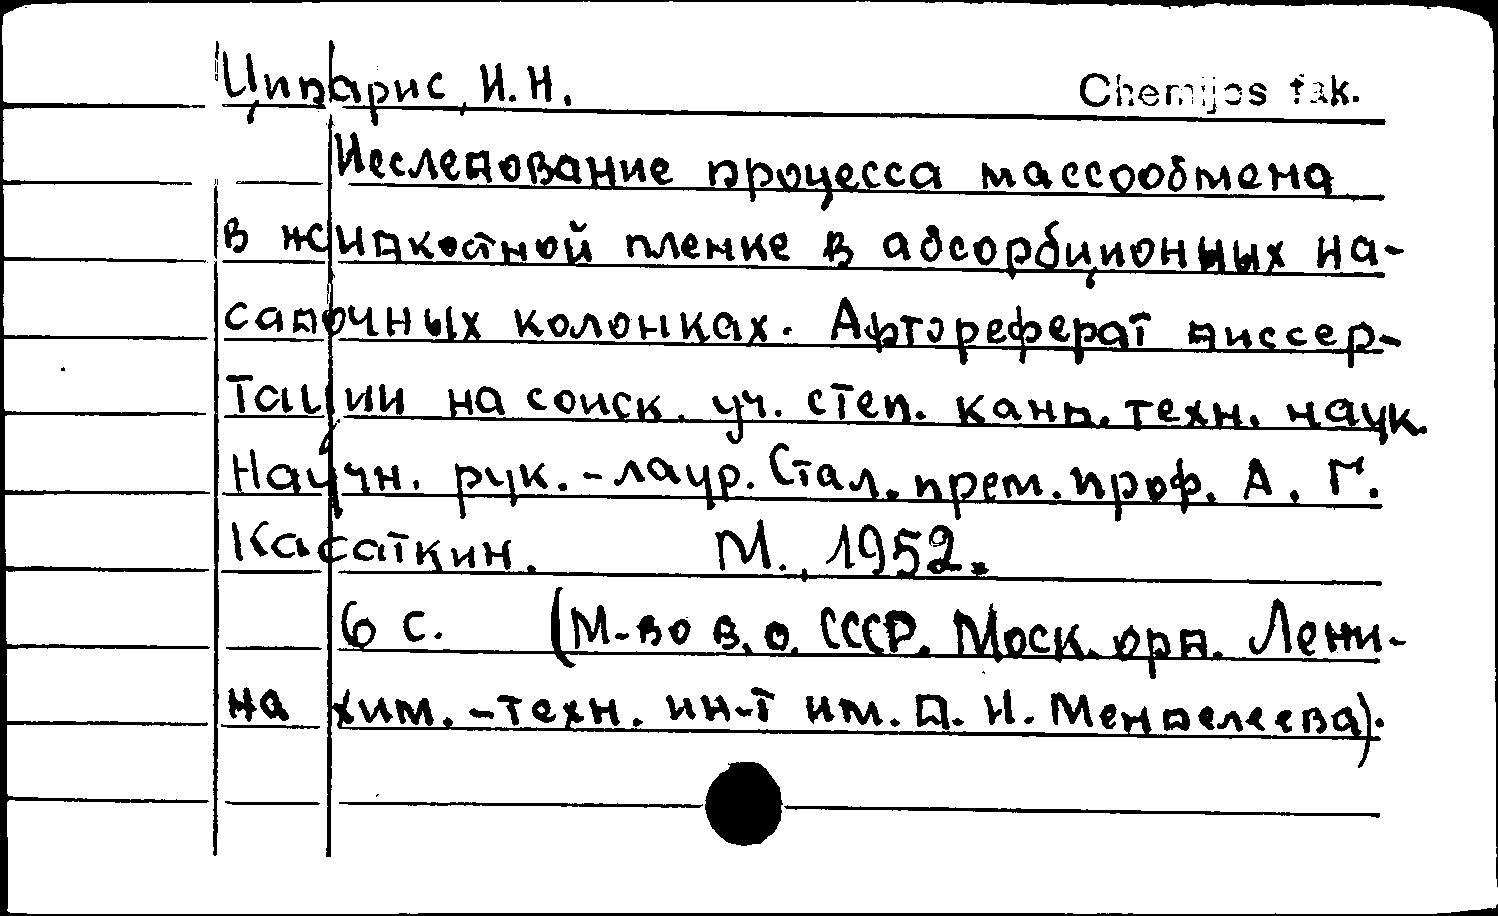 Ципарис, И.Н. Chemijos fak.
Исследование процесса массообмена
в жидкостной пленке в абсорбционных на-
садочных колонках. Автореферат диссер-
тации на соиск. уч. степ. канд. техн. наук.
Научн. рук. - лаур. Стал. прем. проф. А. Г.
Касаткин. М., 1952.
6 с. (М-во в. о. СССР. Моск. орд. Лени-
на хим. - техн. ин-т им. Д. И. Менделеева).